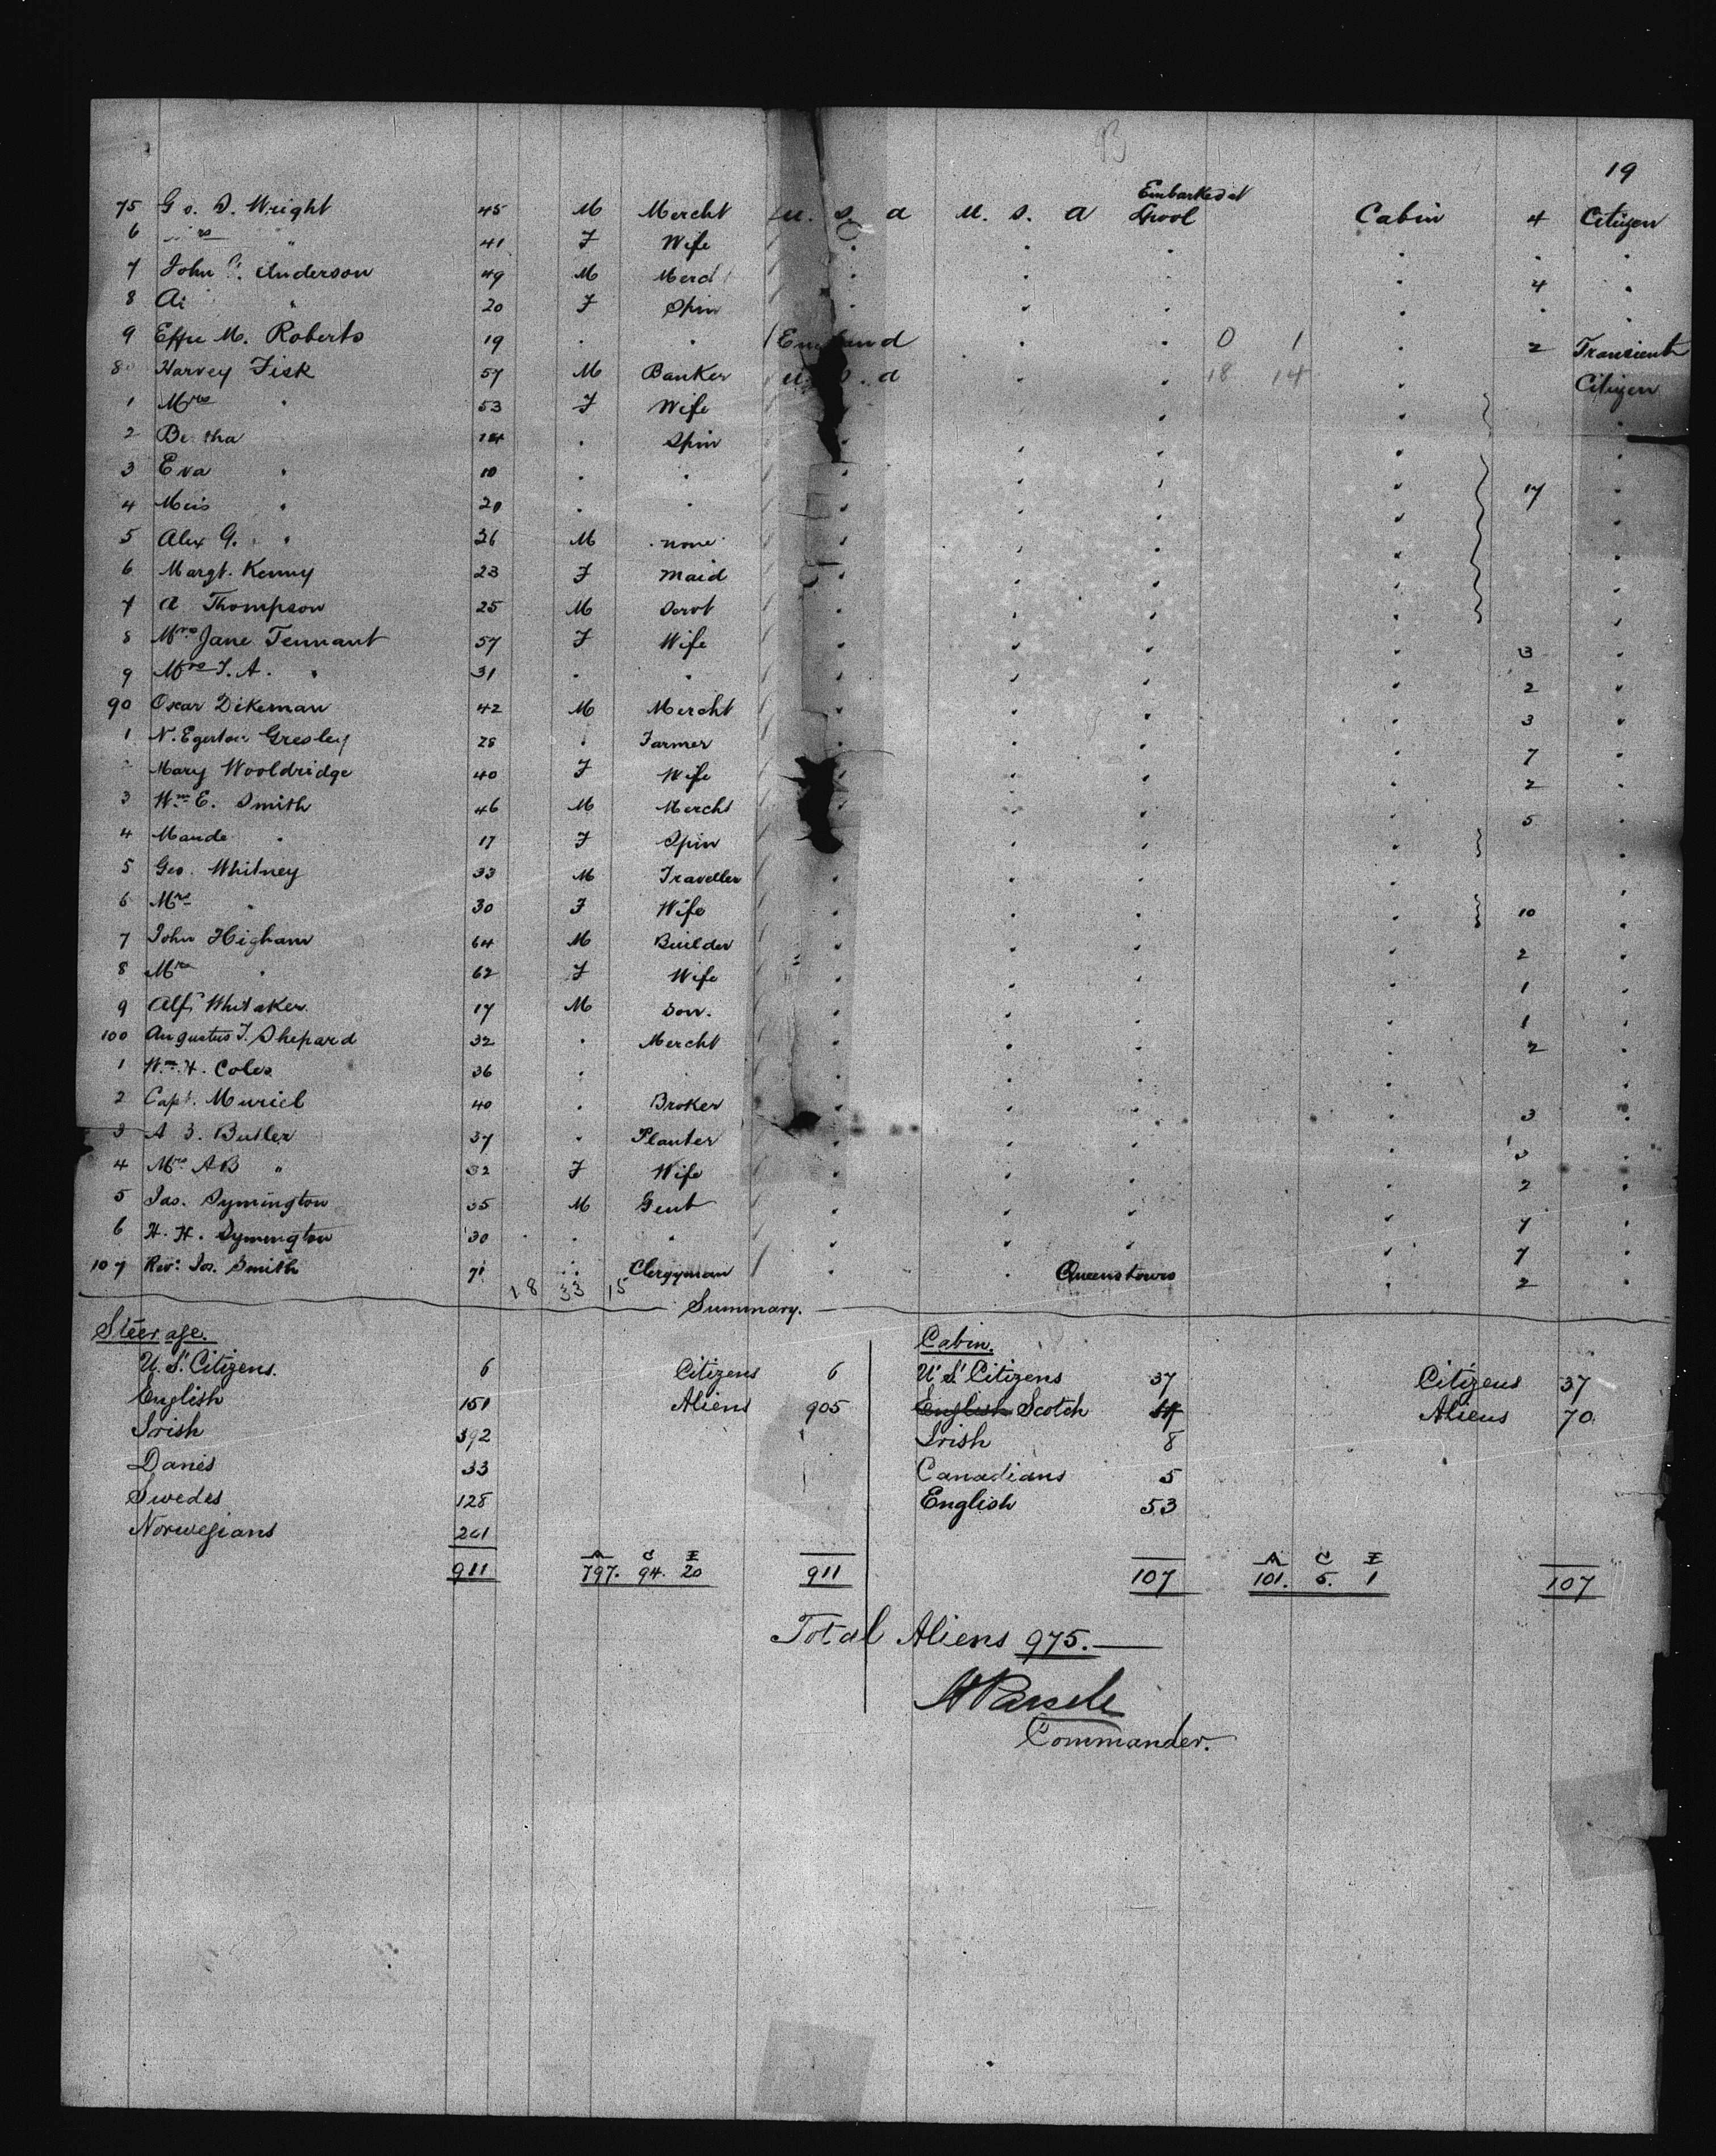 19
Embarked at
75 Geo. D. Wright 45 M Mercht U. S. A U. S. A Lpool Cabin 4 Citizen
6 " 41 F Wife
7 John Anderson 49 M Merct 4
8 " 20 F Spin
9 Effie M. Roberts 19 " " England 0 1 2 Transient
80 Harvey Fisk 57 M Banker U. S. A 18 14 Citizen
1 Mrs " 53 F Wife
2 Bertha 14 " Spin
3 Eva " 10 " " 17
4 " 20 " "
5 Alex G. " 26 M none
6 Margt. Kenny 23 F Maid
7 A Thompson 25 M Servt
8 Mrs Jane Tennant 57 F Wife 3
9 Mrs T. A. " 31 " " 2
90 Oscar Dikeman 42 M Mercht 3
1 N. Egerton Gresley 28 " Farmer 7
2 Mary Wooldridge 40 F Wife 2
3 Wm E. Smith 46 M Mercht 5
4 Maude " 17 F Spin
5 Geo. Whitney 33 M Traveller
6 Mrs " 30 F Wife 10
7 John Higham 64 M Builder 2
8 Mrs " 62 F Wife 1
9 Alf. Whitaker 17 M Son. 1
100 Augustus F. Shepard 32 " Mercht 2
1 Wm H. Coles 36 "
2 Capt. Muriel 40 " Broker 3
3 A B. Butler 37 " Planter 3
4 Mrs AB " 32 F Wife 2
5 Jas. Symington 35 M Gent 7
6 H. H. Symington 30 " " 7
107 Rev: Jos. Smith 71 " Clergyman Queenstown 2
18 33 15
Summary.
Steerage. Cabin.
U. S. Citizens. 6 Citizens 6 U. S. Citizens 37 Citizens 37
English 151 Aliens 905 English Scotch 4 Aliens 70.
Irish 392 Irish 8
Danes 33 Canadians 5
Swedes 128 English 53
Norwegians 201
A C I A C I
911 797. 94. 20 911 107 101. 5. 1 107
Total Aliens 975.
Commander.